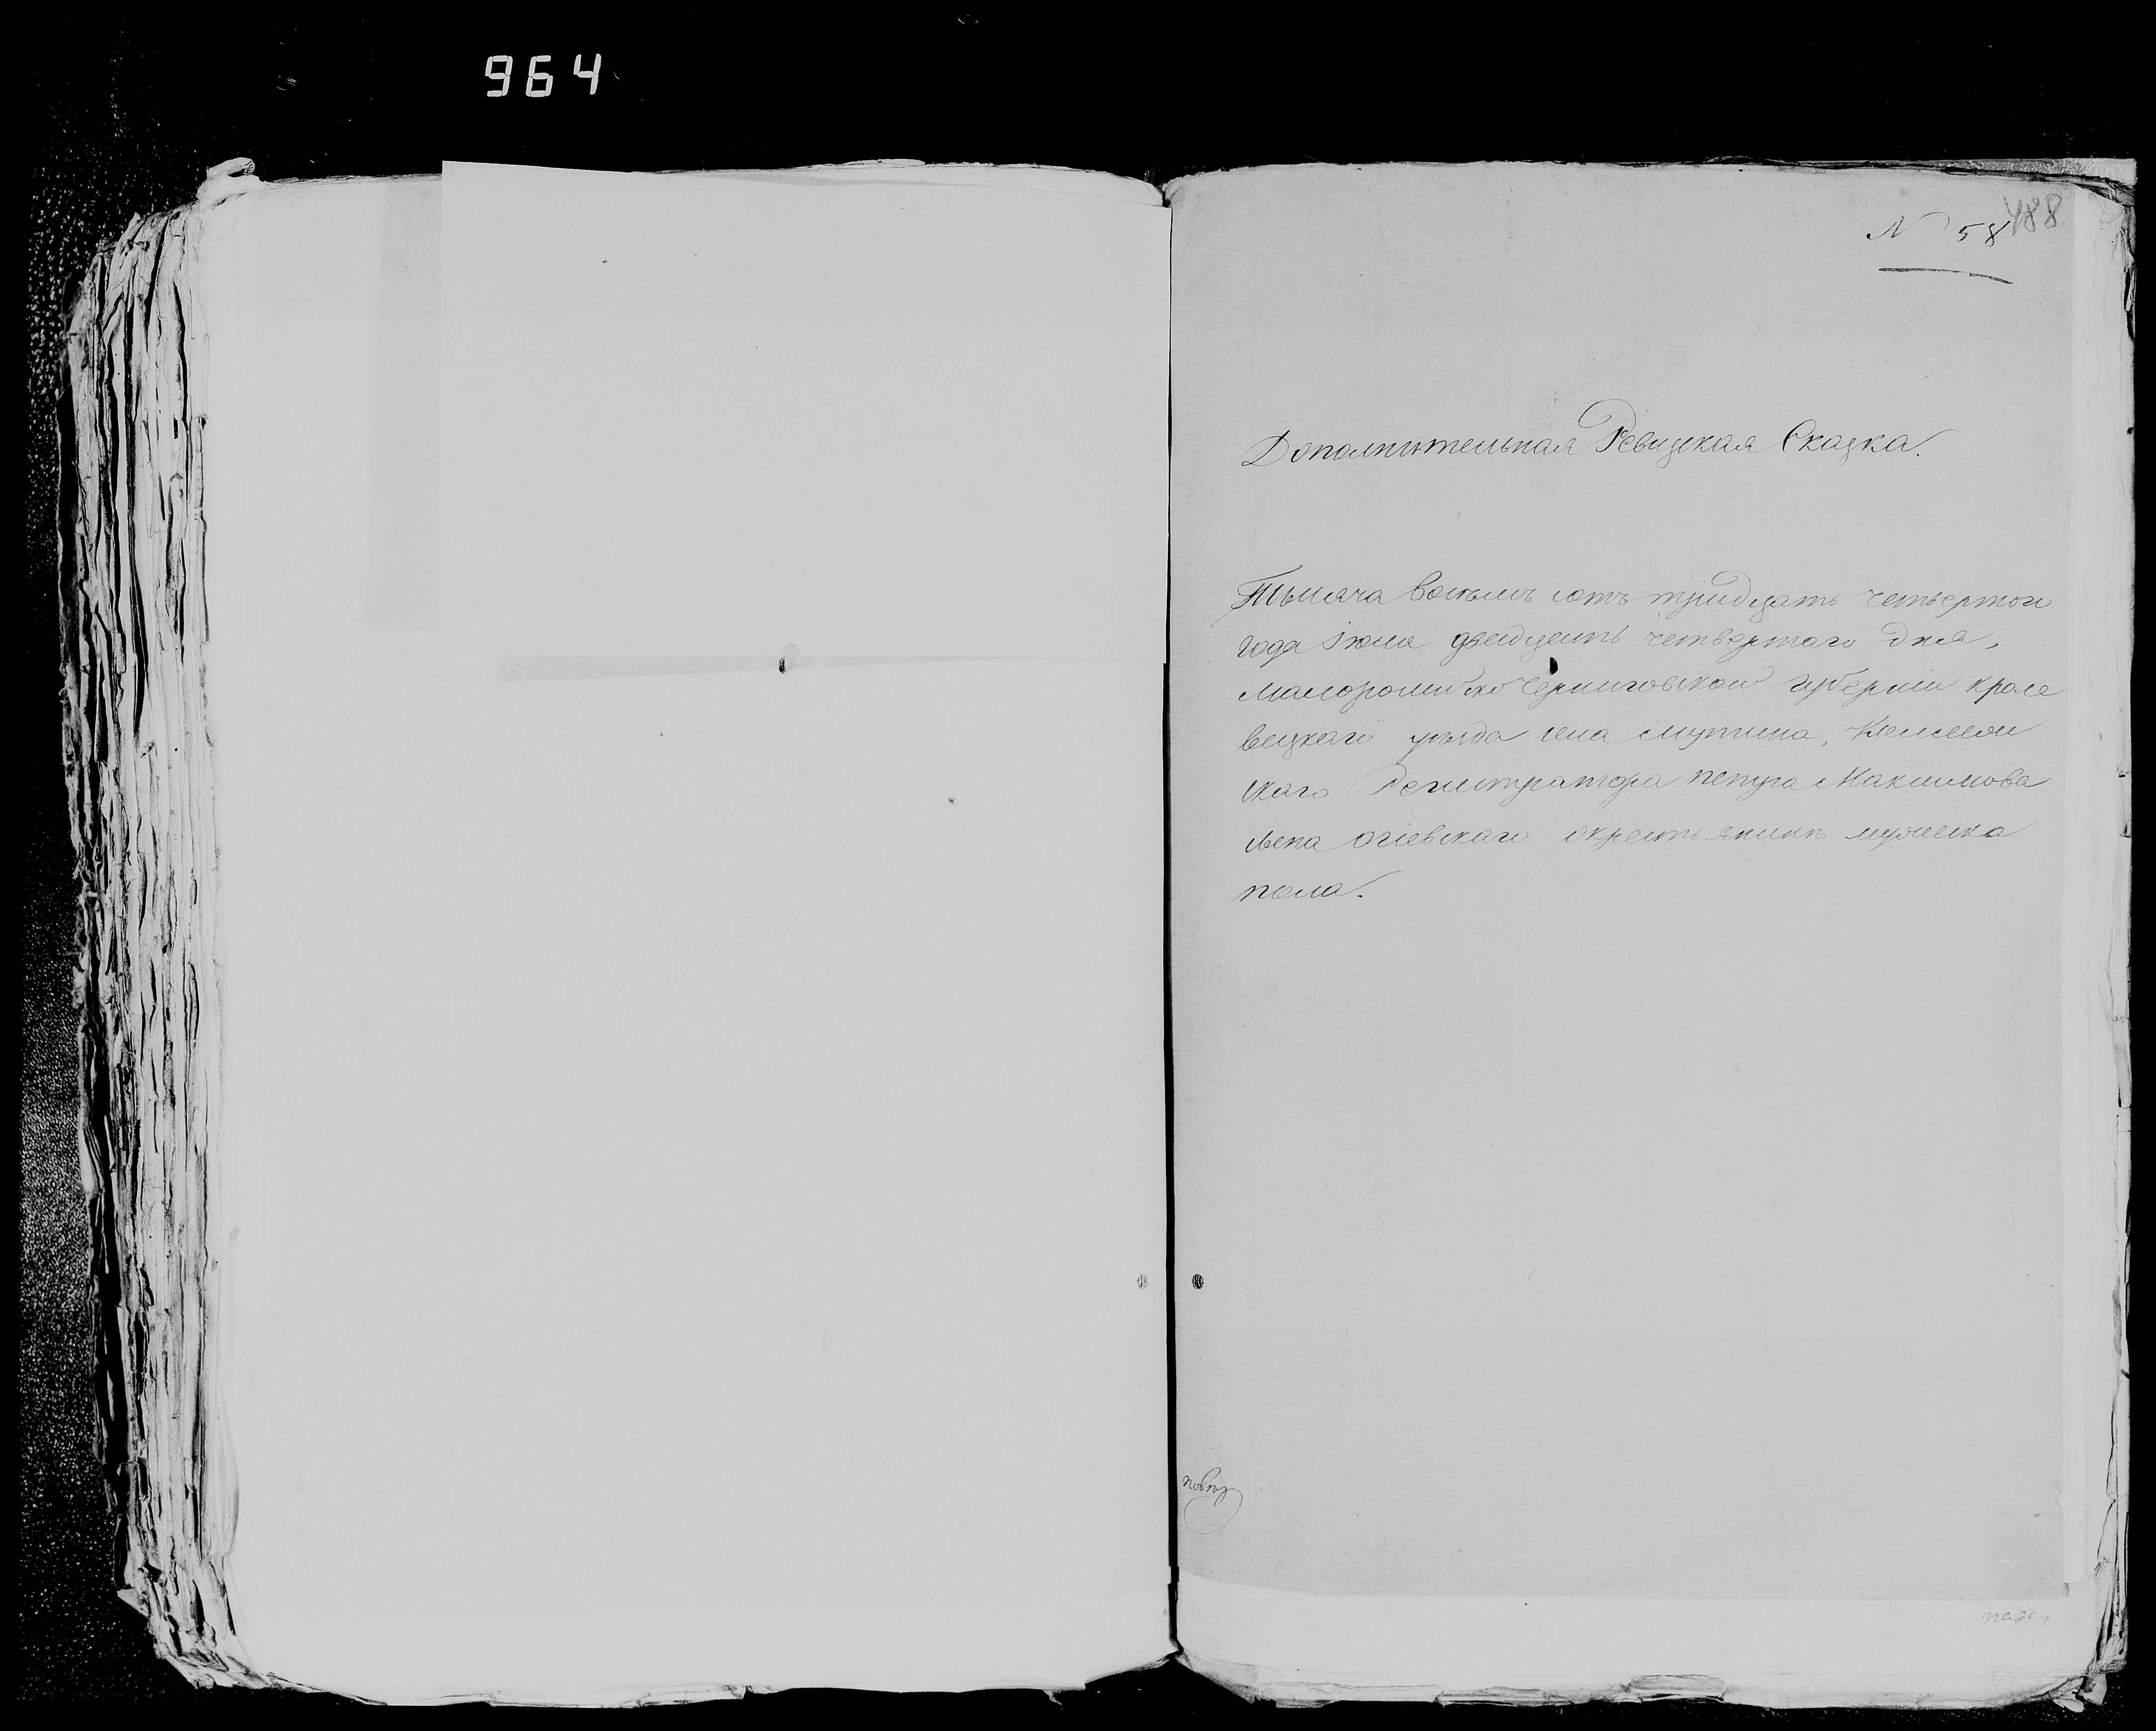 964
488
№ 58
Дополнительная Ревизская Сказка.
Тысяча восемь сотъ тридцать четвертого
года Іюля двадцать четвертаго дня,
малоросийско Черниговской губерніи кроле
вецкаго уезда села мутина, Коллеж
скаго Регистратора петра Максимова
сына огіевскаго окрестьянинъ мужеска
пола.